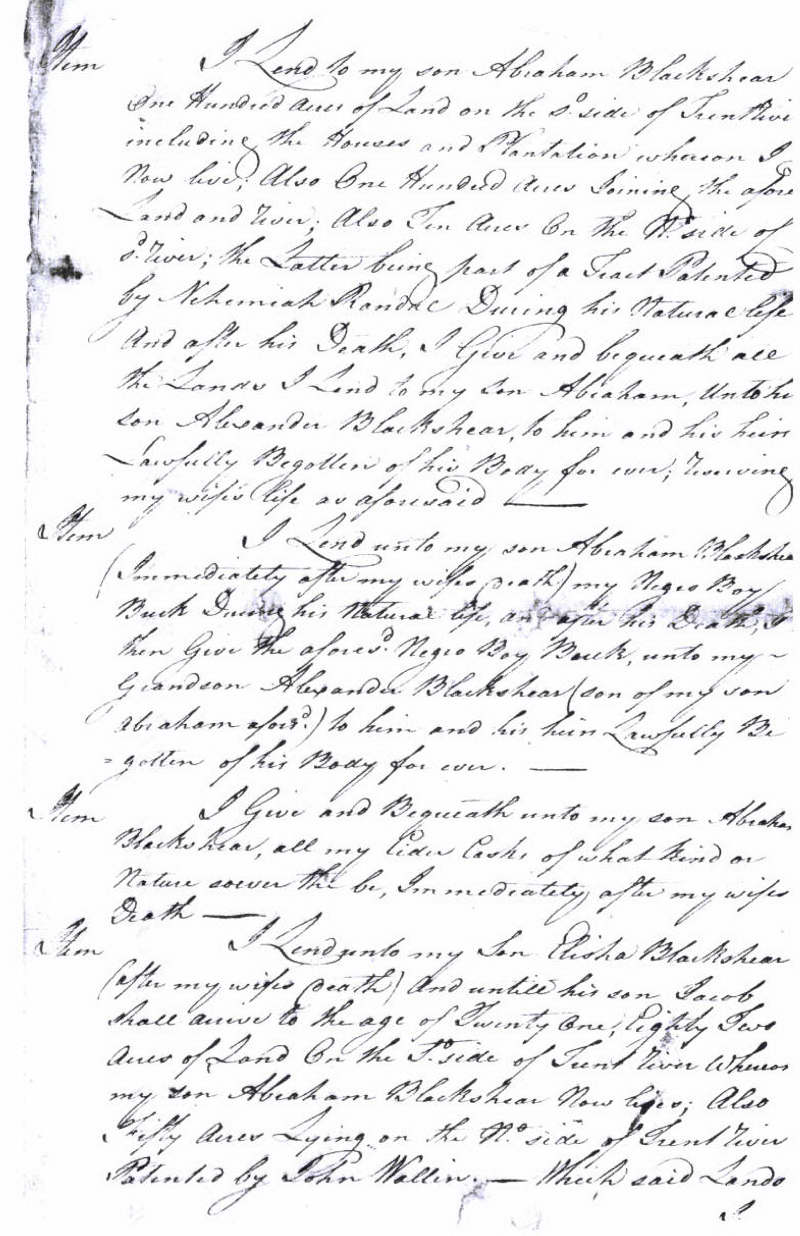 Item I Lend to my son Abraham Blackshear
One Hundred Acres of Land on the So. side of Trent Rive
including the Houses and Plantation whereon I
Now live; Also One Hundred Acres Joining the afore
Land and River; Also Ten Acres On the No. side of
sd. River; the Latter being part of a Tract Patented
by Nehemiah Randal During his Natural life
And after his Death, I Give and bequeath all
the Lands I Lend to my son Abraham, Unto hi
son Alexander Blackshear, to him and his heirs
Lawfully Begotten of his Body for ever; reserving
my wife's life as aforesaid —
Item I Lend unto my son Abraham Blackshea
(Immediately after my wifes death) my Negro Boy
Buck During his Natural life, and after his Death, I
then Give the aforesd. Negro Boy Buck, unto my -
Grandson Alexander Blackshear (son of my son
Abraham aforsd.) to him and his heirs Lawfully Be
= gotten of his Body for ever. —
Item I Give and Bequeath unto my son Abraham
Blackshear, all my Cider Casks of what kind or
Nature soever the be, Immediately after my wifes
Death —
Item I Lend unto my Son Elisha Blackshear
(after my wifes death) And untill his son Jacob
shall arive to the age of Twenty One, Eighty Two
Acres of Land On the So. side of Trent River Whereon
my son Abraham Blackshear Now lives; Also
Fifty Acres Lying on the No. side of Trent River
Patented by John Wallin. — Which said Lands
I